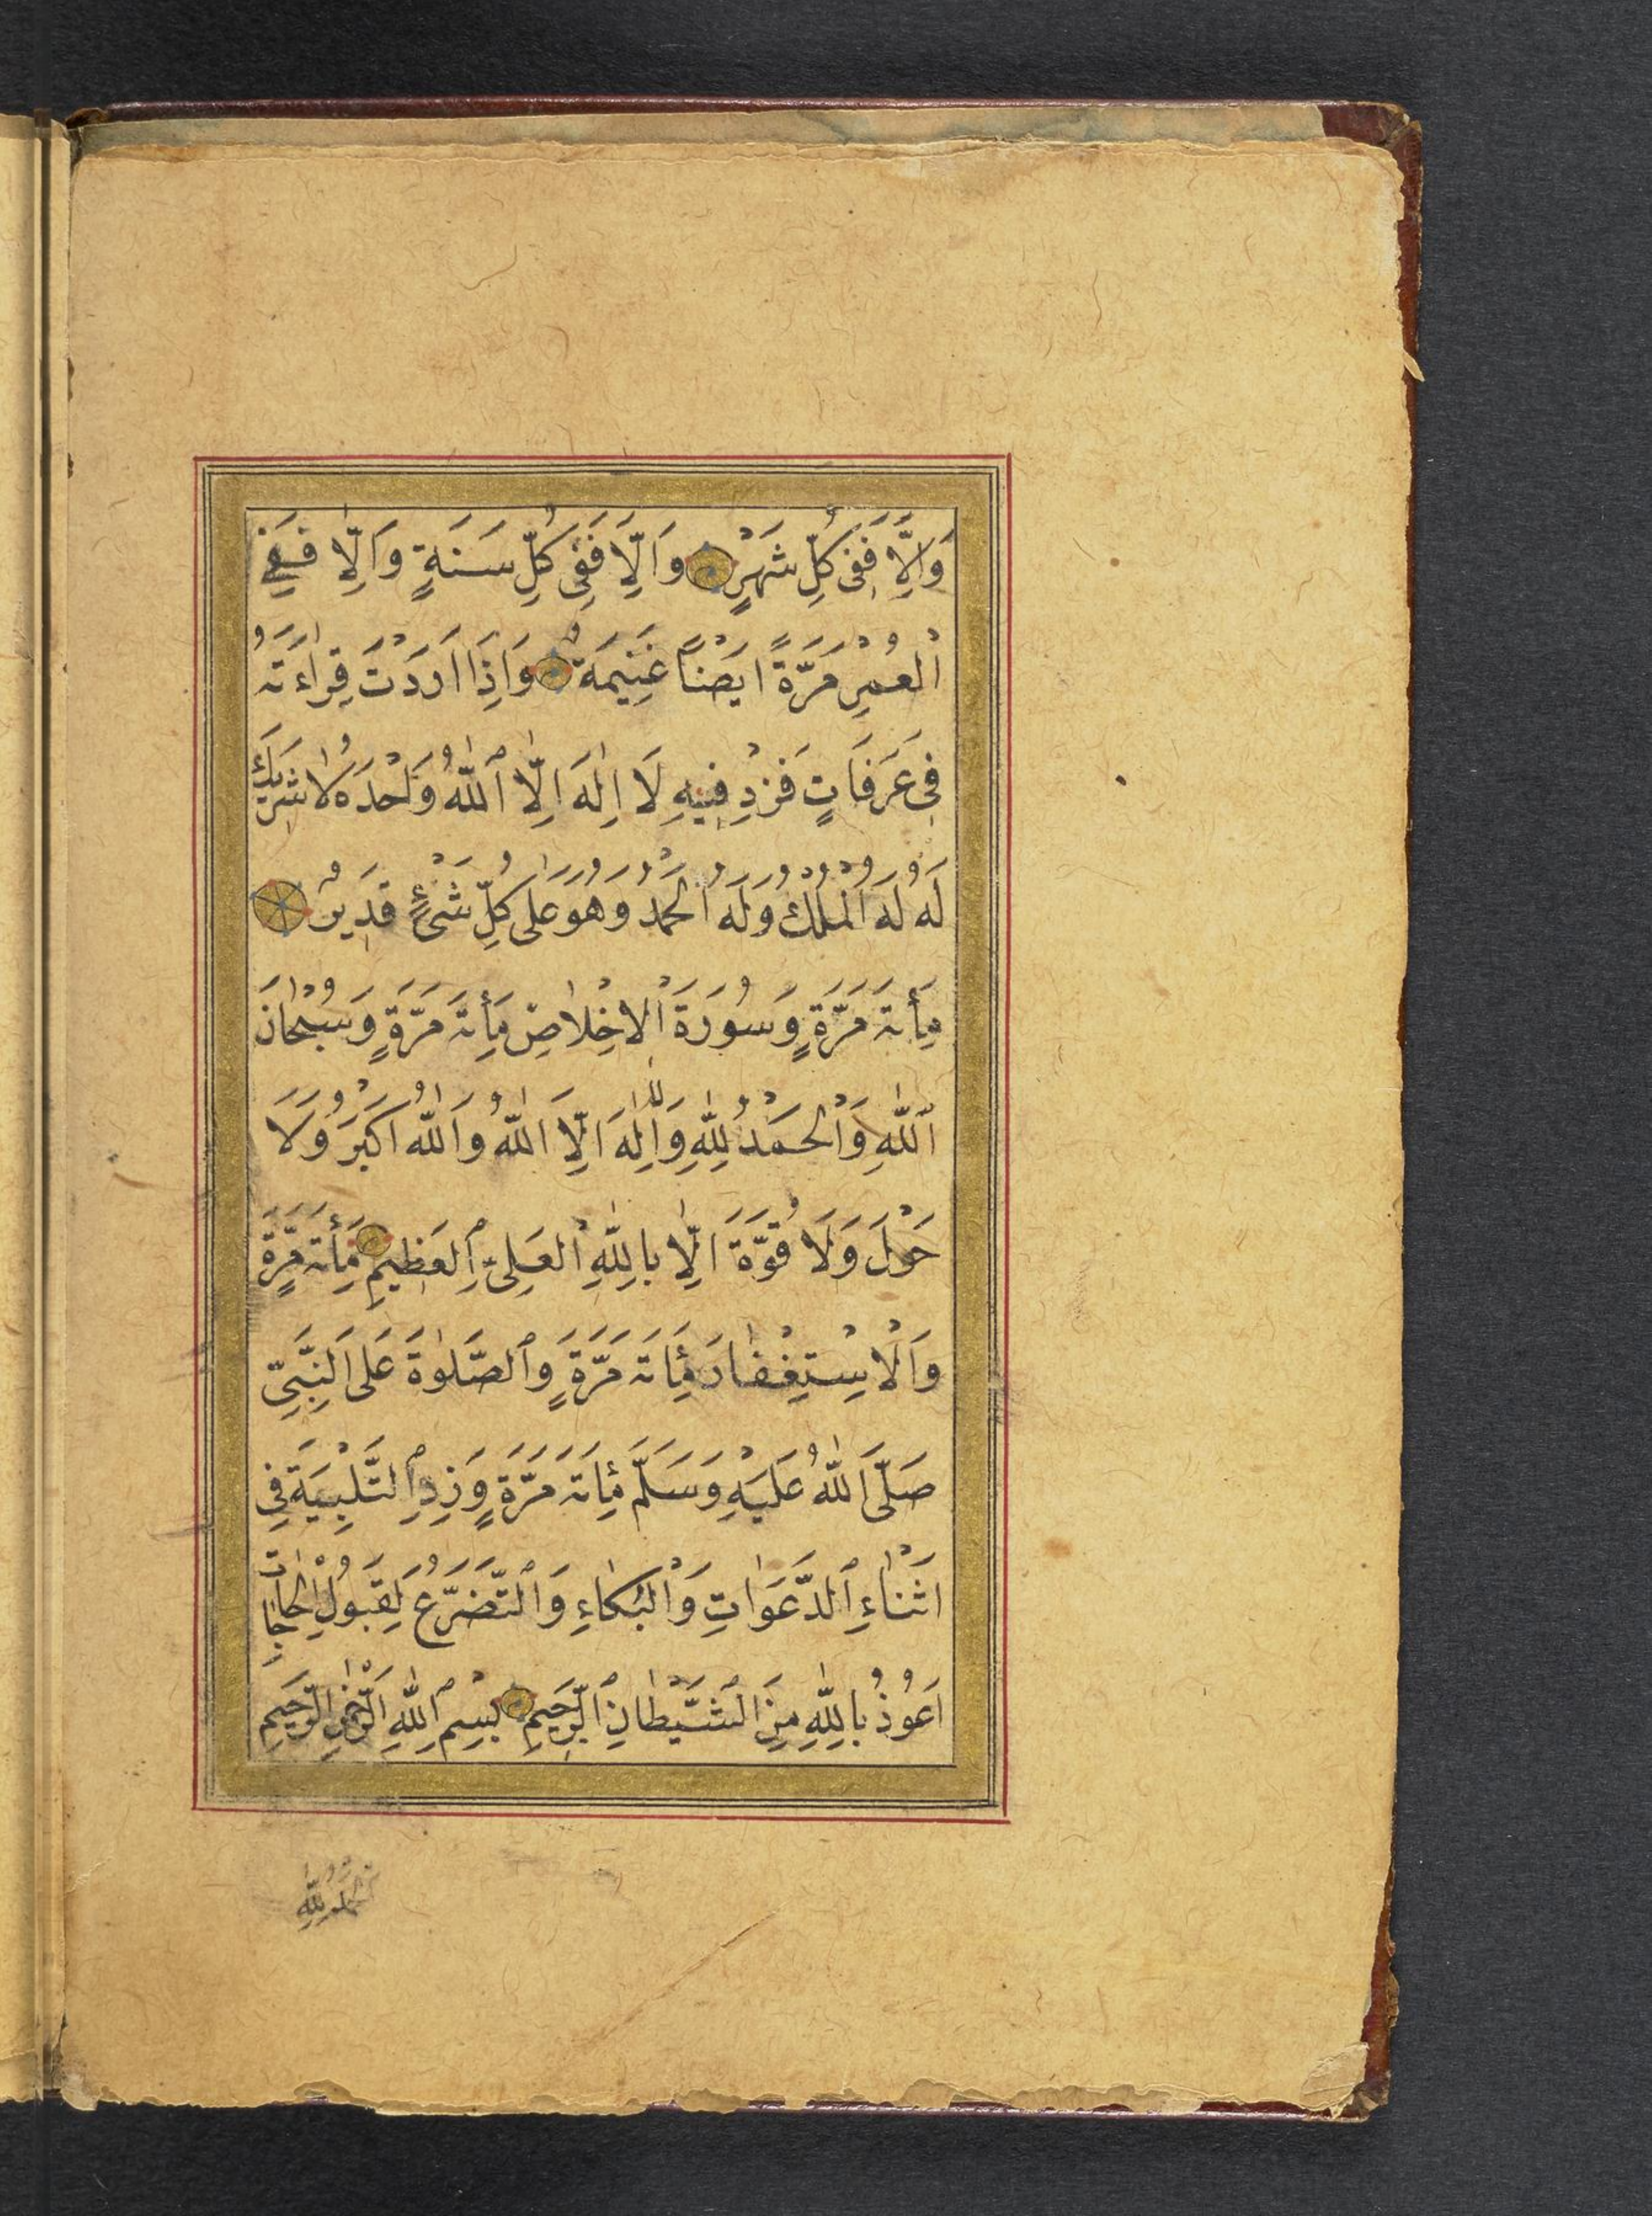 وَاِلَّا فَفِى كُلِّ شَهْرٍ وَاِلَّا فَفِى كُلِّ سَنَةٍ وَاِلَّا فَفِى
اْلعُمْرِ مَرَّةً اَيْضًا غَنِيمَةٌ وَاِذَا اَرَدْتَ قِرَاءَتَهُ
فِى عَرَفَاتٍ فَزِدْ فِيهِ لَا اِلٰهَ اِلَّا ٱللّٰهُ وَحْدَهُ لَا شَرِيكَ
لَهُ لَهُ اْلمُلْكُ وَلَهُ اْلحَمْدُ وَهُوَ عَلٰى كُلِّ شَىْءٍ قَدِيرٌ
مِأَتَ مَرَّةٍ وَسُورَةَ اْلاِخْلَاصِ مِأَتَ مَرَّةٍ وَسُبْحَانَ
ٱللّٰهِ وَاْلحَمْدُ لِلّٰهِ وَلَا اِلٰهَ اِلَّا اللّٰهُ وَاللّٰهُ اَكْبَرُ وَلَا
حَوْلَ وَلَا قُوَّةَ اِلَّا بِاللّٰهِ اْلعَلِىِّ ٱلعَظِيمِ مِأَتَ مَرَّةٍ
وَاْلاِسْتِغْفَارَ مِأَتَ مَرَّةٍ وَٱلصَّلٰوةَ عَلَى النَّبِىِّ
صَلَّى اللّٰهُ عَلَيْهِ وَسَلَّمَ مِأَتَ مَرَّةٍ وَزِدِ ٱلتَّلْبِيَةَ فِى
اَثْنَاءِ ٱلدَّعَوَاتِ وَاْلبُكَاءِ وَٱلتَّضَرُّعَ لِقَبُولِ اْلحَاجَاتِ
اَعُوذُ بِاللّٰهِ مِنَ الشَّيْطَانِ ٱلرَّجِيمِ بِسْمِ ٱللّٰهِ الرَّحْمٰنِ الرَّحِيمِ
اَلْحَمْدُ لِلّٰهِ